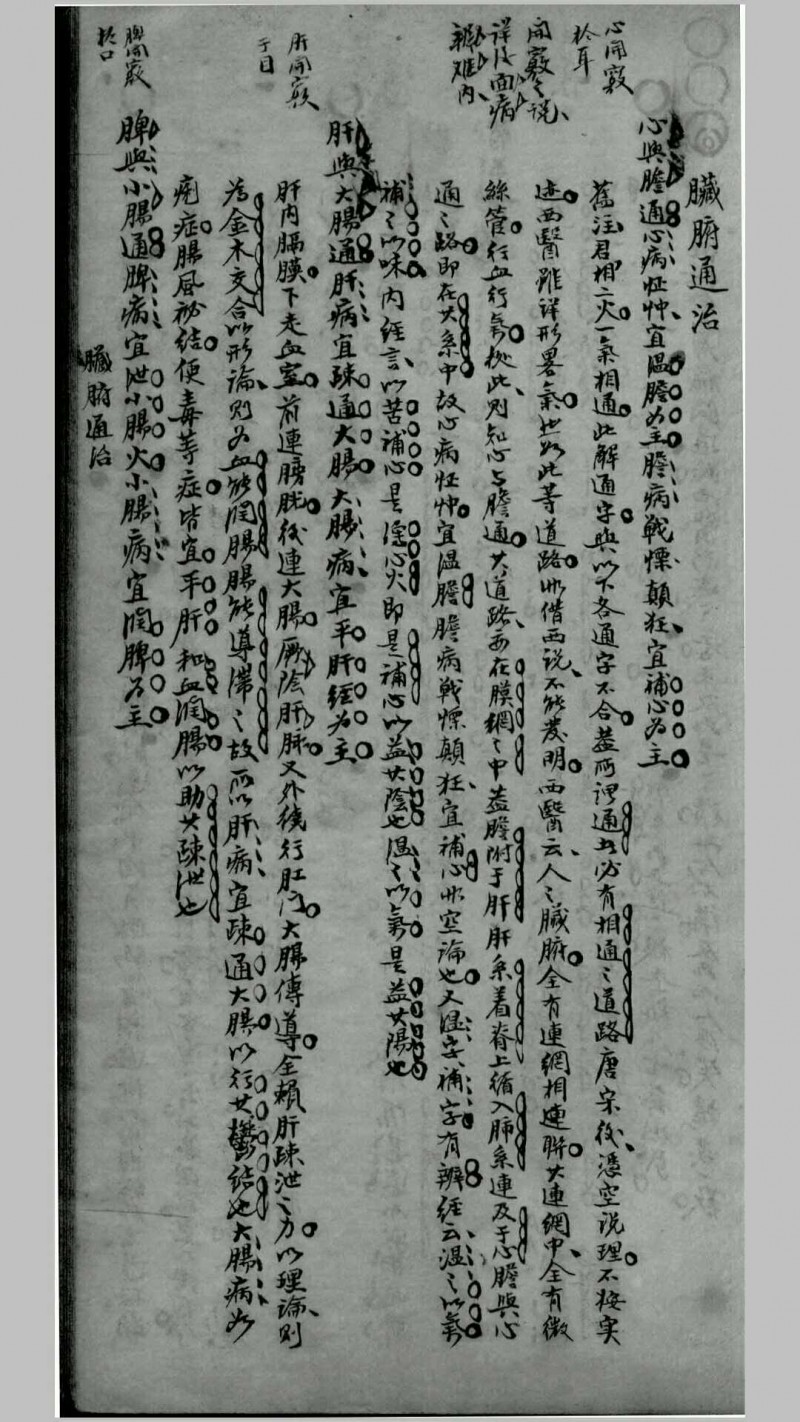 臟腑通治
心與膽通心病怔忡宜溫膽為主膽病戰慄顛狂宜補心為主
舊注君相二火一氣相通此解通字與以下各通字不合蓋所謂通者必有相通之道路唐宋後憑空說理不按實
迹西醫雖詳形畧氣然如此等道路非借西說不能發明西醫云人之臟腑全有連網相連聯其連網中全有微
絲管行血行氣據此則知心與膽通其道路亦在膜網之中蓋膽附于肝肝系着脊上循入肺系連及于心膽與心
通之路即在其系中故心病怔忡宜溫膽膽病戰慄顛狂宜補心非空論也又溫字補字有辨經云溫之以氣
補之以味內經言以苦補心是瀉心火即是補心以益其陰也溫之以氣是益其陽也
肝與大腸通肝病宜疎通大腸大腸病宜平肝經為主
肝內膈膜下走血室前連膀胱後連大腸厥陰肝脉又外繞行肛门大腸傳導全賴肝疎泄之力以理論則
為金木交合以形論則為血能潤腸腸能導滯之故所以肝病宜疎通大腸以行其鬱結也大腸病如
痢症腸風秘結便毒等症皆宜平肝和血潤腸以助其疎泄也
脾與小腸通脾病宜泄小腸火小腸病宜潤脾為主
心開竅
於耳
開竅之說
詳後面病
辨难內
肝開竅
于目
脾開竅
於口
臟腑通治